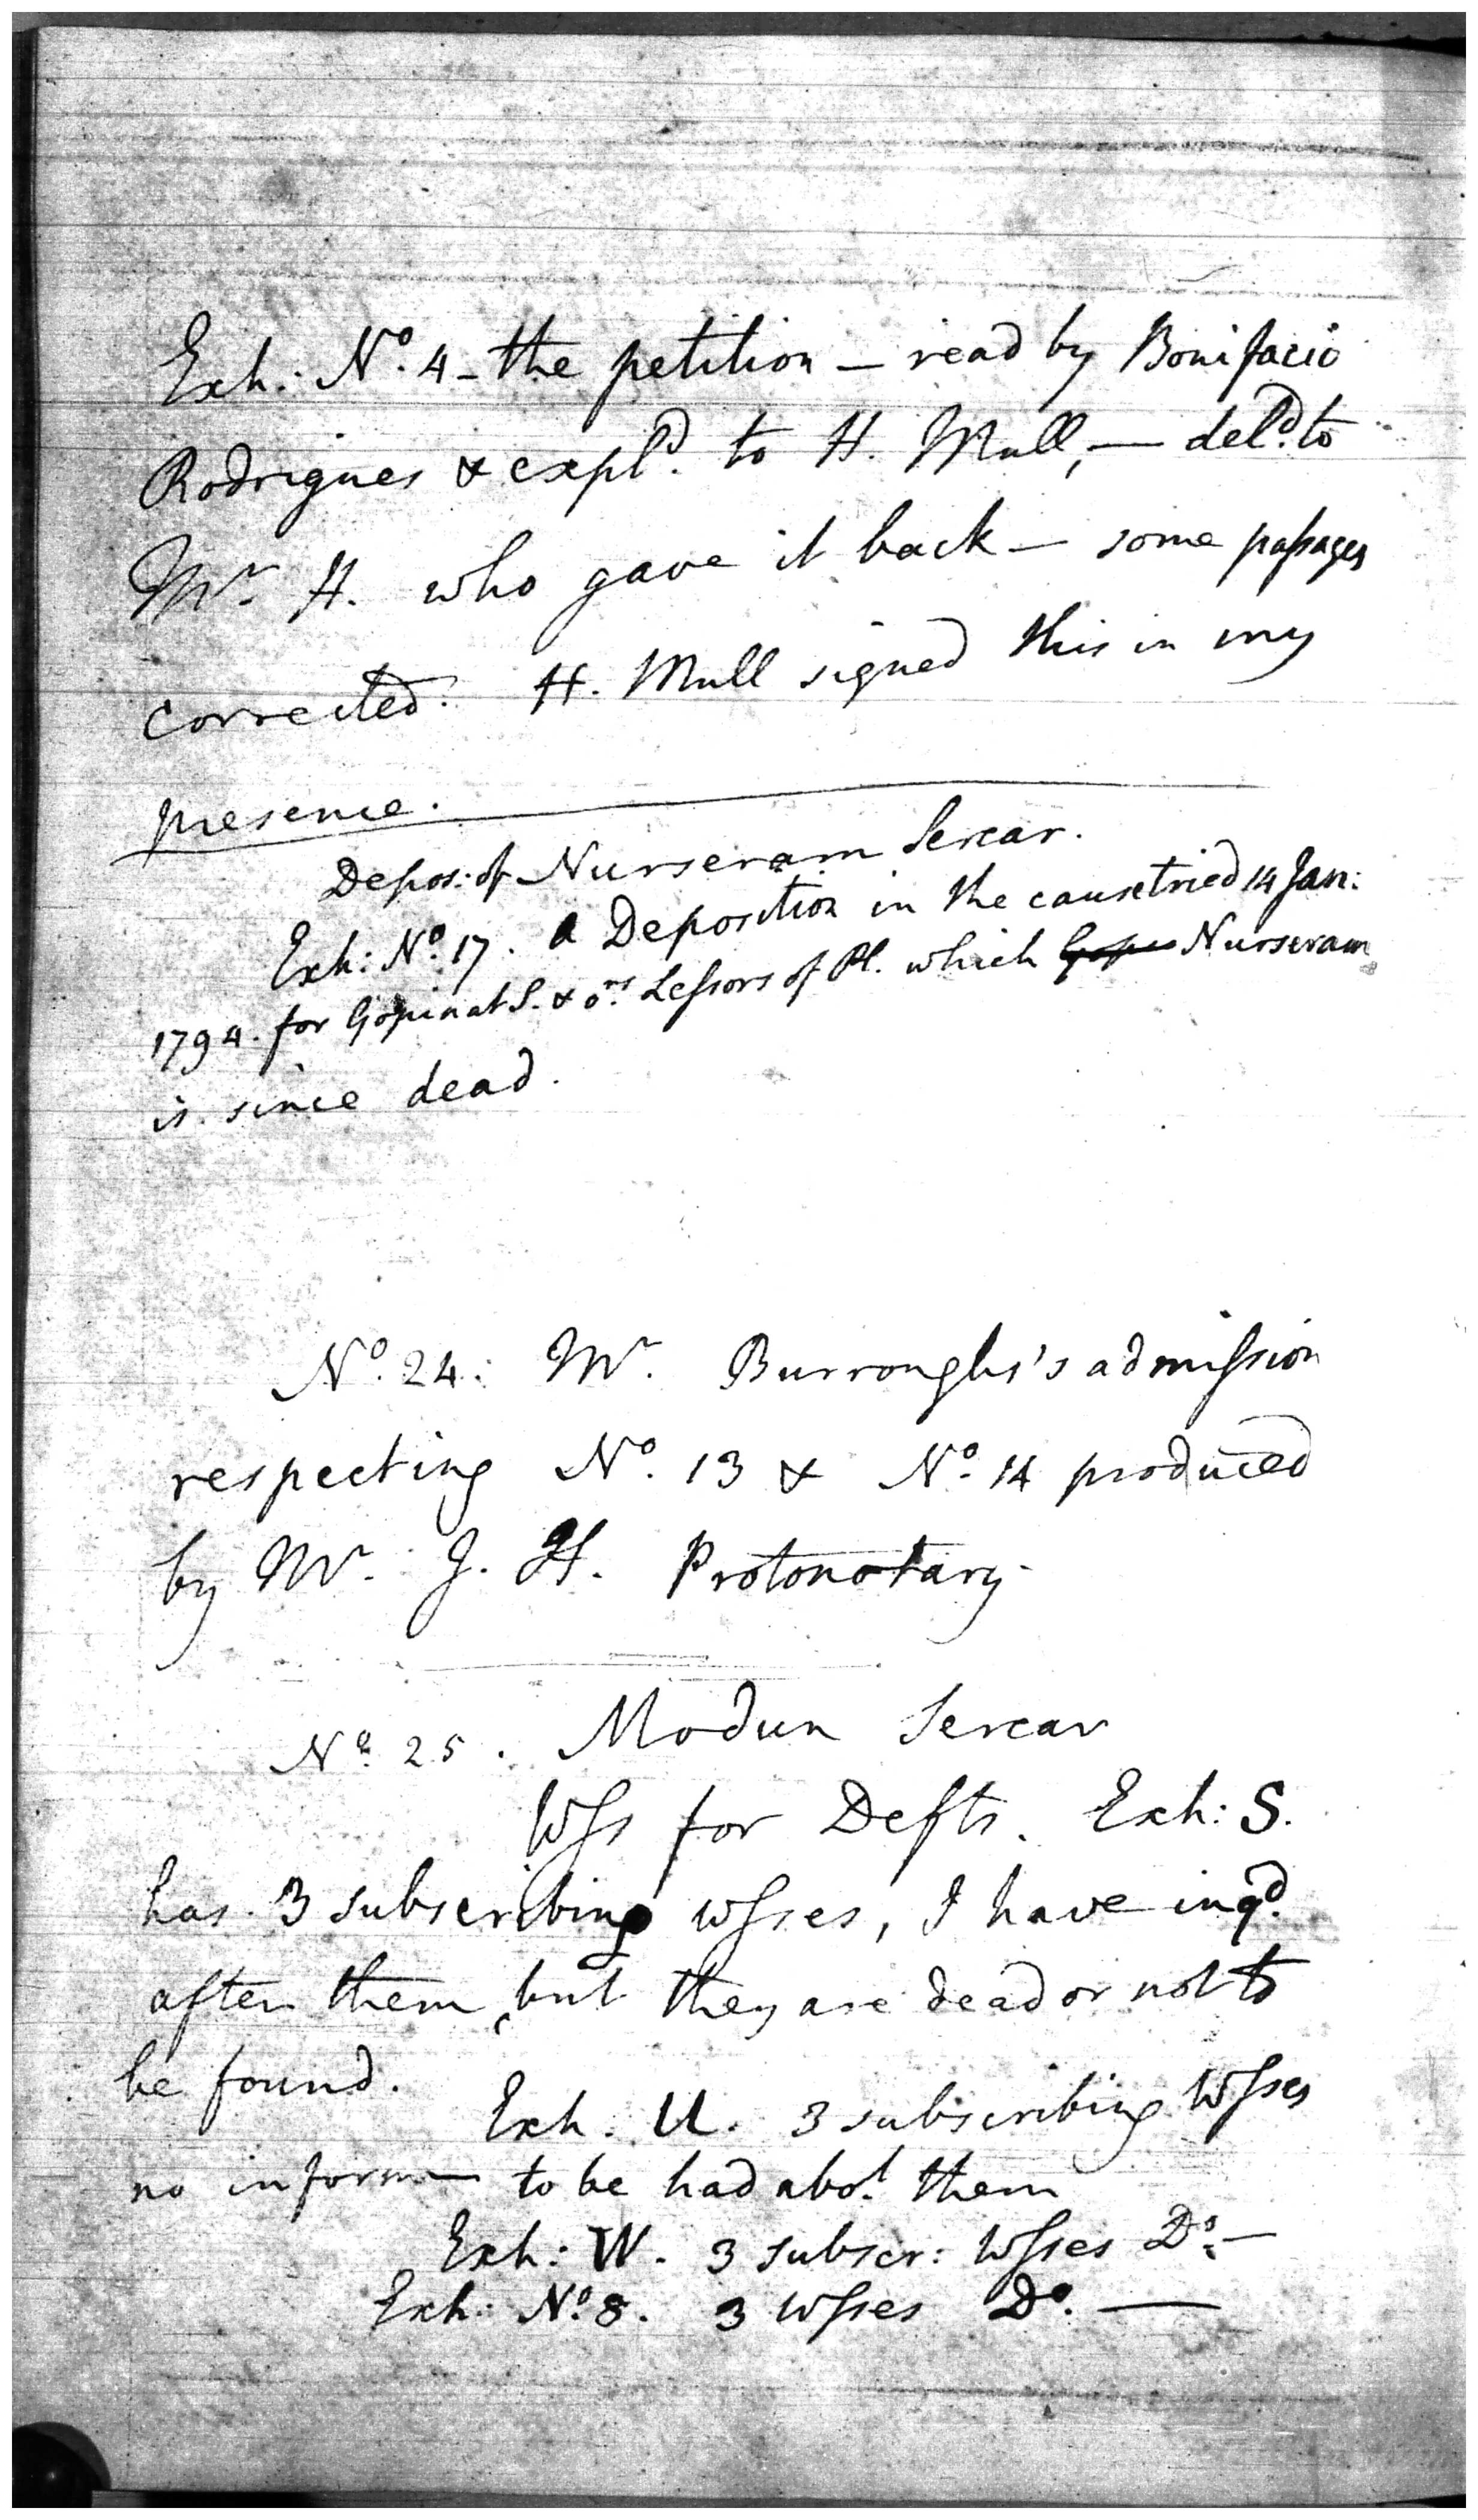 Exh: No. 4 - the petition - read by Bonifacio
Rodrigues & expld. to H. Mull, - deld. to
Mr. H. who gave it back - some paſsages
corrected. H. Mull signed this in my
presence.
Depos: of Nurseram Sercar.
Exh: No. 17. a Deposition in the cause tried 14 Jan:
1794. for Gopinat S. & ors. Leſsors of Pl. which Nurseram
is since dead.
No. 24: Mr. Burroughs's admiſsion
respecting No. 13 & No. 14 produced
by Mr. J. H. Protonotary
No. 25. Modun Sercar
Wſs for Defts. Exh: S.
has 3 subscribing wſses, I have inqd.
after them, but they are dead or not to
be found.
Exh. U. 3 subscribing Wſses
no inform to be had abot. them
Exh: W. 3 subscr: Wſses Do. -
Exh: No. 8. 3 Wſses Do. —